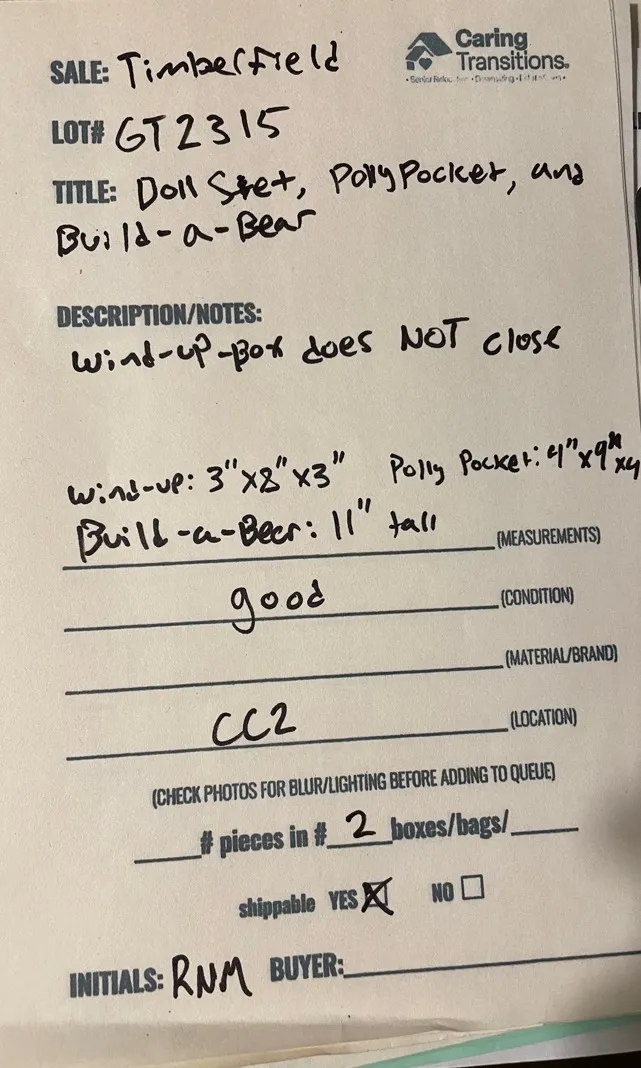 SALE: Timberfield
Caring
Transitions.
LOT# GT2315
TITLE: Doll Set, Polly Pocket, and
Build-a-Bear
DESCRIPTION/NOTES:
Wind-up-Box does NOT close
Wind-up: 3"x8"x3" Polly Pocket: 4"x9"x4
Build-a-Bear: 11" tall (MEASUREMENTS)
good (CONDITION)
(MATERIAL/BRAND)
CC2 (LOCATION)
(CHECK PHOTOS FOR BLUR/LIGHTING BEFORE ADDING TO QUEUE)
# pieces in # 2 boxes/bags/
shippable YES NO
INITIALS: RNM BUYER: